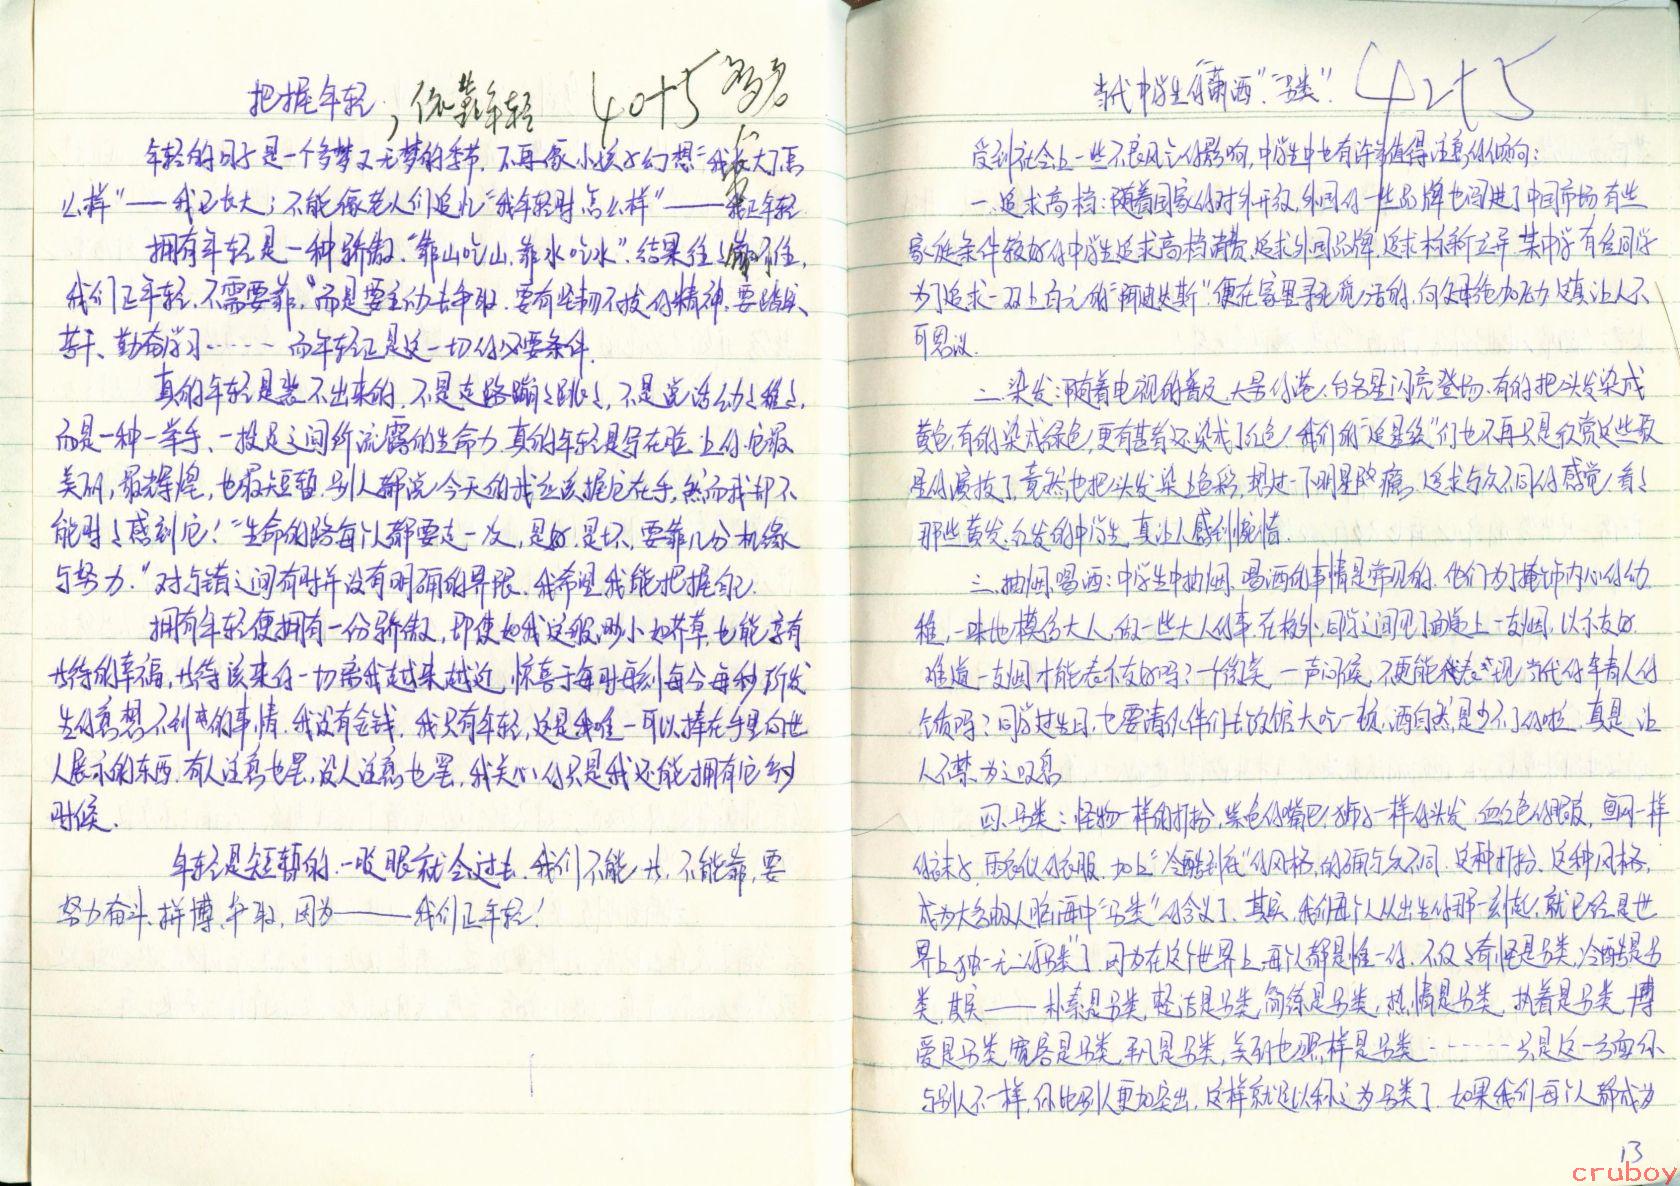 把握年轻
，依靠年轻
40+5
年轻的日子是一个多梦又无梦的季节，不再像小孩子幻想“我长大了怎
么样”——我已长大；不能像老人们追忆“我年轻时怎么样”——我正年轻
拥有年轻是一种骄傲。“靠山吃山，靠水吃水”，结果往往靠不住，
我们正年轻，不需要“靠”，而是要主动去争取，要有坚韧不拔的精神，要踏实、
苦干、勤奋学习……而年轻正是这一切的必要条件。
真的年轻是装不出来的，不是走路蹦蹦跳跳，不是说话幼幼稚稚，
而是一种一举手、一投足之间所流露的生命力。真的年轻是写在脸上的，它最
美丽，最辉煌，也最短暂。别人都说今天的我应该握它在手，然而我却不
能时时感到它！“生命的路每个人都要走一次，是好，是坏，要靠几分机缘
与努力。”对与错之间有时并没有明确的界限，我希望我能把握自己。
拥有年轻便拥有一份骄傲，即使如我这般，渺小如芥草，也能享有
等待的幸福，等待该来的一切离我越来越近，惊喜于每时每刻每分每秒所发
生的意想不到的事情。我没有金钱，我只有年轻，这是我唯一可以捧在手里向世
人展示的东西。有人注意也罢，没人注意也罢，我关心的只是我还能拥有它多少
时候。
年轻是短暂的，一眨眼就会过去，我们不能等，不能靠，要
努力奋斗、拼搏、争取，因为——我们正年轻！
当代中学生的“潇洒”、“另类”
42+5
受到社会上一些不良风气的影响，中学生中也有许多值得注意的倾向：
一、追求高档：随着国家的对外开放，外国的一些品牌也闯进了中国市场，有些
家庭条件较好的中学生追求高档消费，追求外国品牌，追求标新立异。某中学有位同学
为了追求一双上百元的“阿迪达斯”便在家里寻死觅活的，向父母施加压力，这真让人不
可思议。
二、染发：随着电视的普及，大量的港、台名星闪亮登场，有的把头发染成
黄色，有的染成绿色，更有甚者还染成了红色！我们的“追星族”们也不再只是欣赏这些歌
星的演技了，竟然也把头发染上色彩，想过一下明星的瘾，追求与众不同的感觉！看看
那些黄发、红发的中学生，真让人感到惋惜。
三、抽烟、喝酒：中学生中抽烟、喝酒的事情是常见的，他们为了掩饰内心的幼
稚，一味地模仿大人，做一些大人的事。在校外，同学之间见了面递上一支烟，以示友好。
难道一支烟才能表示友好吗？一个微笑，一声问候，不更能表现当代的年青人的
气质吗？同学过生日，也要请伙伴们去饭馆大吃一顿，酒自然是少不了的啦。真是让
人不禁为之叹息。
四、另类：怪物一样的打扮，紫色的嘴巴，狮子一样的头发，血红色的眼皮，鱼网一样
的袜子，雨衣似的衣服，加上“冷酷到底”的风格，的确与众不同，这种打扮、这种风格，
成为大多数人脑海中“另类”的含义了。其实，我们每个人从出生的那一刻起，就已经是世
界上独一无二的“另类”了，因为在这个世界上，每个人都是惟一的。不仅仅奇怪是另类，冷酷是另
类，其实——朴素是另类，整洁是另类，简练是另类，热情是另类，执着是另类，博
爱是另类，宽容是另类，平凡是另类，美丽也照样是另类……只是这一方面你
与别人不一样，你比别人更加突出，这样就足以称之为另类了。如果我们每个人都成为
13
cruboy